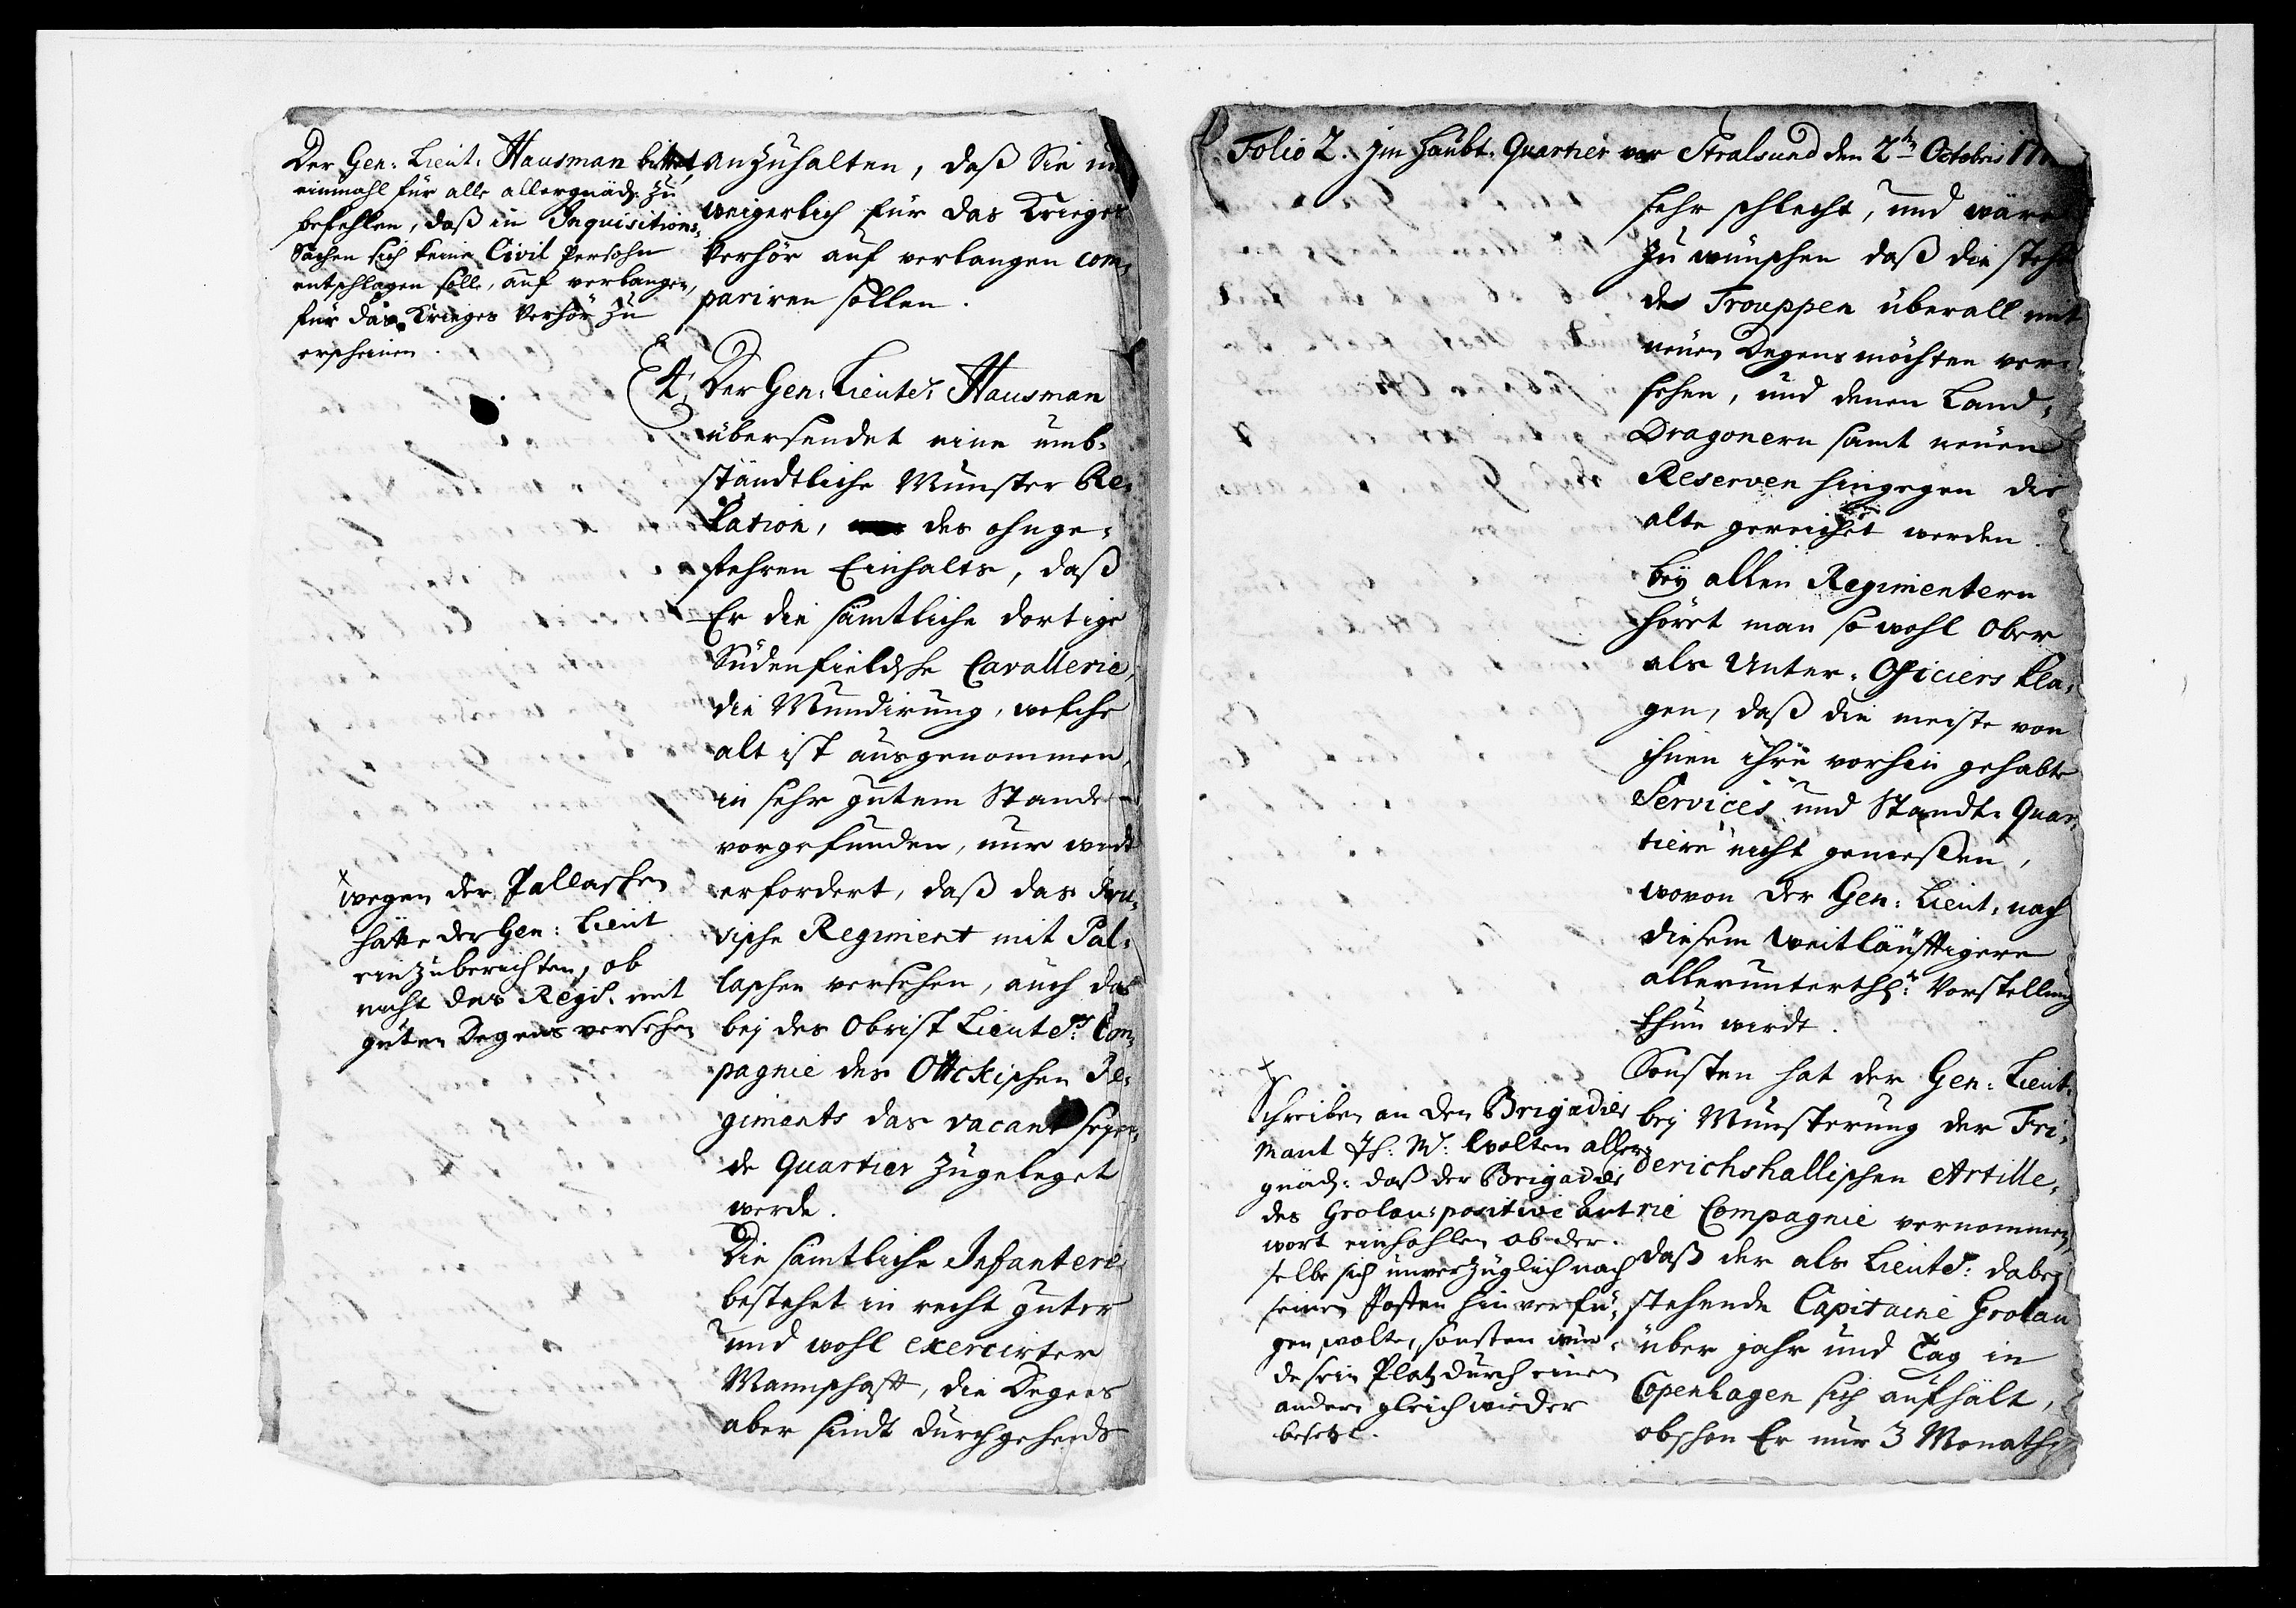 Der Gen: Lieut: Hausman bittet,
einmahl für alle allergnäd: zu
befehlen, daß in Inquisitions-
Sachen sich keine Civil Persohn
entschlagen solle, auf verlangen,
für das Krieges Verhör zu
erscheinen.
anzuhalten, daß Sie un
weigerlich für das Krieges
Verhör auf verlangen com-
pariren sollen.
4, Der Gen: Lieute: Hausman
übersendet eine umb-
ständtliche Munster Re-
lation, des ohnge-
fehren Einhalts, daß
Er die sämtliche dortige
Südenfieldsche Cavallerie,
die Mundirung, welche
alt ist ausgenommen,
in sehr gutem Stande
vorgefunden, nur wirdt
erfordert, daß das
Regiment mit Pal-
laschen versehen, auch das
bej des Obrist Lieute: Com-
pagnie des Ottckischen Re-
giments das vacant seyen-
de Quartier zugeleget
werde.
Die sämtliche Infanterie
bestehet in recht guter
und wohl exercirter
Mannschafft, die Degens
aber sindt durchgehends
x
wegen der Pallaschen
hätte der Gen: Lieut
einzuberichten, ob
nicht das Regt: mit
guten Degens versehen
Folio 2. Jm Haubt. Quartier vor Stralsund den 2tn Octobris 17
sehr schlecht, und wäre
zu wünschen daß die steh
de Trouppen überall mit
neuen Degens möchten ver-
sehen, und denen Land-
Dragonern samt neuen
Reserven hingegen die
alte gereichet werden.
bey allen Regimentern
höret man so wohl Ober
als Unter-Officiers kla-
gen, daß die meiste von
ihnen ihre vorhin gehabte
Services und Standt-Quar-
tiere nicht genießen,
wovon der Gen: Lieut: nach
diesem weitläufftigere
allerunterth: Vorstellung
thun wirdt.
Sonsten hat der Gen: Lieut:
bej Munsterung der Fri-
derichshallischen Artille-
rie Compagnie vernommen,
daß der als Lieut: dabej
stehende Capitaine Grolau
über jahr und Tag in
Copenhagen sich aufhält,
obschon Er nur 3 Monaths
x
Schreiben an den Brigadier
Mant Jh: M: wolten aller-
gnäd: daß der Brigadier
des Grolau: positive Ant
wort einhohlen ob der-
selbe sich unverzüglich nach
seinen Posten hin verfü-
gen wolte, sonsten wür-
de sein Platz durch einen
andern gleich wieder
besetzt.